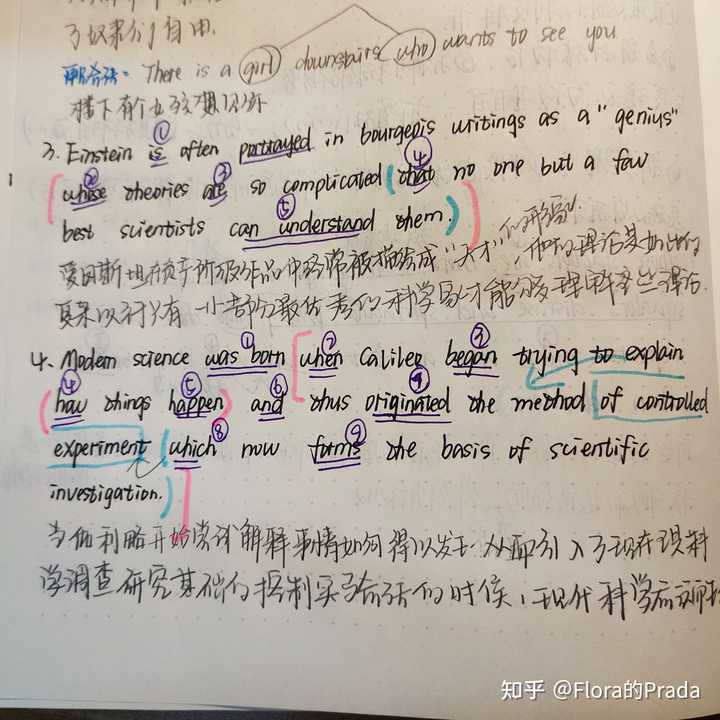 了奴隶们自由.
There is a girl downstairs who wants to see you
楼下有个女孩想见你
①
3. Einstein is often portrayed in bourgeois writings as a "genius"
② ③ ④
whose theories are so complicated (that no one but a few
⑤
best scientists can understand them.)
爱因斯坦在资产阶级作品中经常被描绘成"天才"的形象,他的理论是如此的
复杂以至于只有一小部分最优秀的科学家才能够理解这些理论.
① ② ③
4. Modern science was born when Galileo began trying to explain
④ ⑤ ⑥ ⑦
how things happen and thus originated the method of controlled
⑧ ⑨
experiment which now forms the basis of scientific
investigation.
当伽利略开始尝试解释事情如何得以发生,从而引入了现在现科
学调查研究基础的控制实验方法的时候,现代科学应
知乎 @Flora的Prada